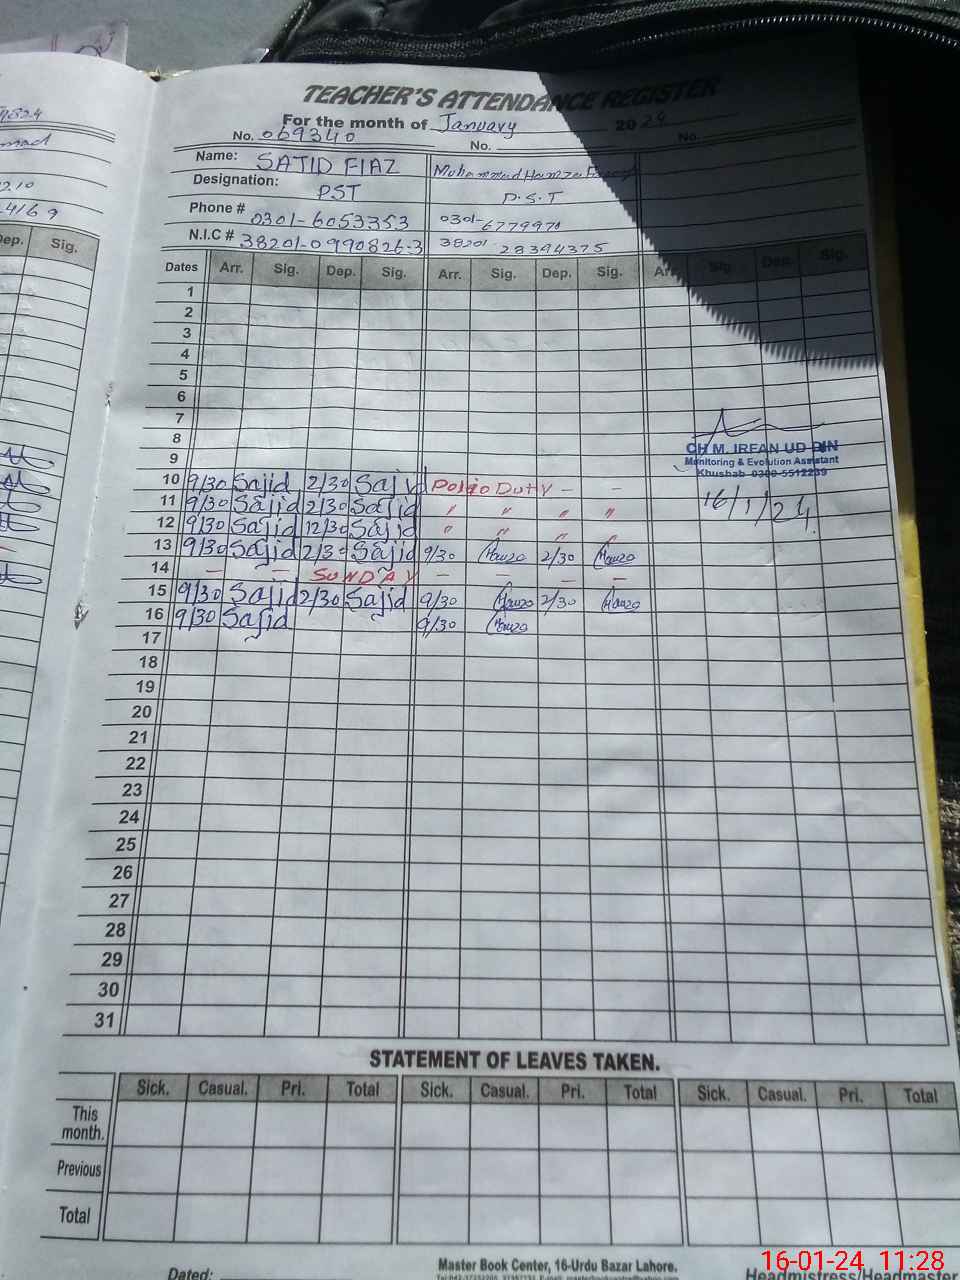 TEACHER'S ATTENDANCE REGISTER
For the month of January 2024
No. 069340 No. No.
Name: SAJID FIAZ Muhammad Hamza
Designation: PST P.S.T
Phone # 0301-6053353 0301-6779970
N.I.C # 38201-0990826-3 38201 28394375
Dates Arr. Sig. Dep. Sig. Arr. Sig. Dep. Sig. Arr. Sig. Dep. Sig.
Dep. Sig.
1
2
3
4
5
6
7
8
CH M. IRFAN UD DIN
9
Monitoring & Evolution Assistant
Khushab 0300-5512239
10 9/30 Sajid 2/30 Sajid Polio Duty - -
16/1/24
11 9/30 Sajid 2/30 Sajid " " " "
12 9/30 Sajid 12/30 Sajid " " " "
13 9/30 Sajid 2/30 Sajid 9/30 Hamza 2/30 Hamza
14 - - SUNDAY - - - -
15 9/30 Sajid 2/30 Sajid 9/30 Hamza 2/30 Hamza
16 9/30 Sajid 9/30 Hamza
17
18
19
20
21
22
23
24
25
26
27
28
29
30
31
STATEMENT OF LEAVES TAKEN.
Sick. Casual. Pri. Total Sick. Casual. Pri. Total Sick. Casual. Pri. Total
This
month.
Previous
Total
Master Book Center, 16-Urdu Bazar Lahore.
Dated: Headmistress/Headmaster
16-01-24 11:28